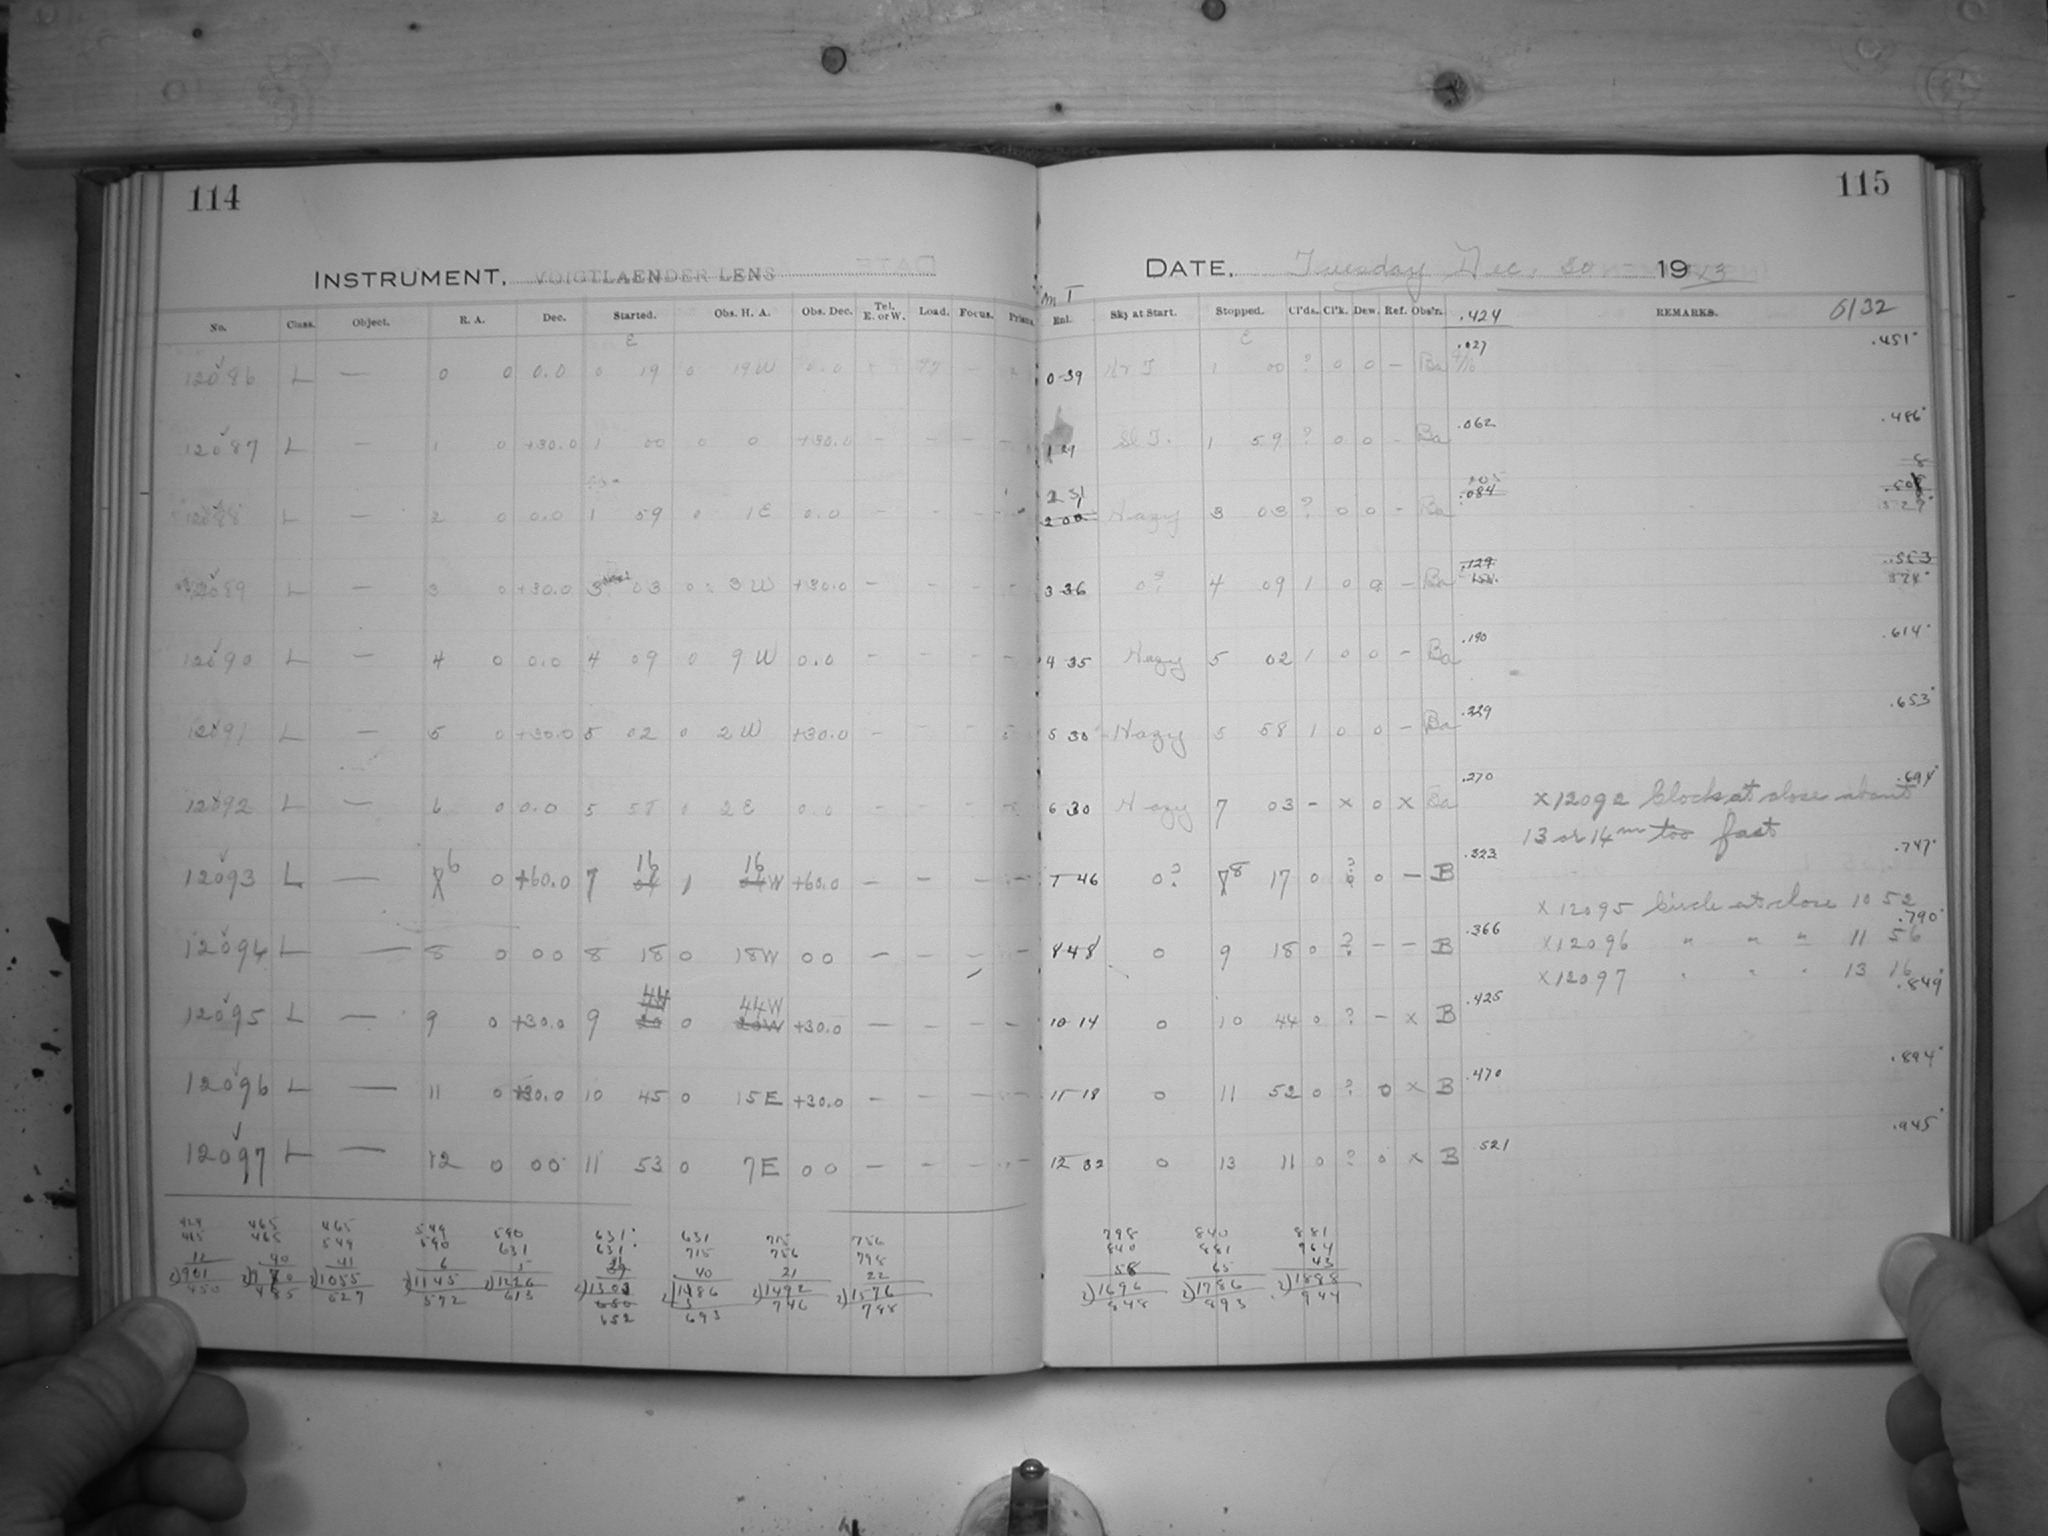 114
INSTRUMENT. VOIGTLAENDER LENS
No. Class. Object. R. A. Dec. Started. Obs. H. A. Obs. Dec. Tel. E. or W. Load. Focus. Prism.
E
12086 L — 0 0 0.0 0 19 0 19 W 0.0
12087 L — 1 0 +30.0 1 00 0 0 +30.0 - - - -
12088 L — 2 0 0.0 1 59 0 1 E 0.0 - - - -
12089 L — 3 0 +30.0 3 03 0 3 W +30.0 - - - -
12090 L — 4 0 0.0 4 09 0 9 W 0.0 - - - -
12091 L — 5 0 +30.0 5 02 0 2 W +30.0 - - -
12092 L — 6 0 0.0 5 58 0 2 E 0.0 - - -
12093 L — 6 0 +60.0 7 16 1 16 W +60.0 - - - -
12094 L — 8 0 00 8 18 0 18W 00 - - - -
12095 L — 9 0 +30.0 9 44 0 44W +30.0 - - - -
12096 L — 11 0 +30.0 10 45 0 15 E +30.0 - - - -
12097 L — 12 0 00 11 53 0 7 E 00 - - - -
424 465 465 549 590 631 631 715 756
465 465 549 590 631 631 715 756 798
12 40 41 6 5 40 21 22
901 1055 1145 1226 1303 1492 1576
450 485 527 572 613 652 693 746 788
115
DATE. Tuesday Dec. 30 1923
M T
Enl. Sky at Start. Stopped. Cl'ds. Cl'k. Dew. Ref. Obs'r. .424 REMARKS. 6132
E
0 39 1 00 ? 0 0 - Ba .027 .451
1 29 Sl T. 1 59 ? 0 0 - Ba .062 .486
2 31 Hazy 3 03 ? 0 0 - Ba .084
3 36 0? 4 09 1 0 0 - Ba .553
4 35 Hazy 5 02 1 0 0 - Ba .190 .614
5 30 Hazy 5 58 1 0 0 - Ba .229 .653
6 30 Hazy 7 03 - x 0 x Ba .270 .694
x 12092 Clock at close about
13 or 14m too fast
7 46 0? 8 17 0 ? 0 - B .323 .747
x 12095 Circle at close 10 52
8 48 0 9 18 0 ? - - B .366 .790
x 12096 " " " 11 56
x 12097 " " " 13 16
10 14 0 10 44 0 ? - x B .425 .849
11 18 0 11 52 0 ? 0 x B .470 .894
12 32 0 13 11 0 ? 0 x B .521 .945
798 840 881
840 881 964
58 65 43
1696 1786 1888
848 893 944